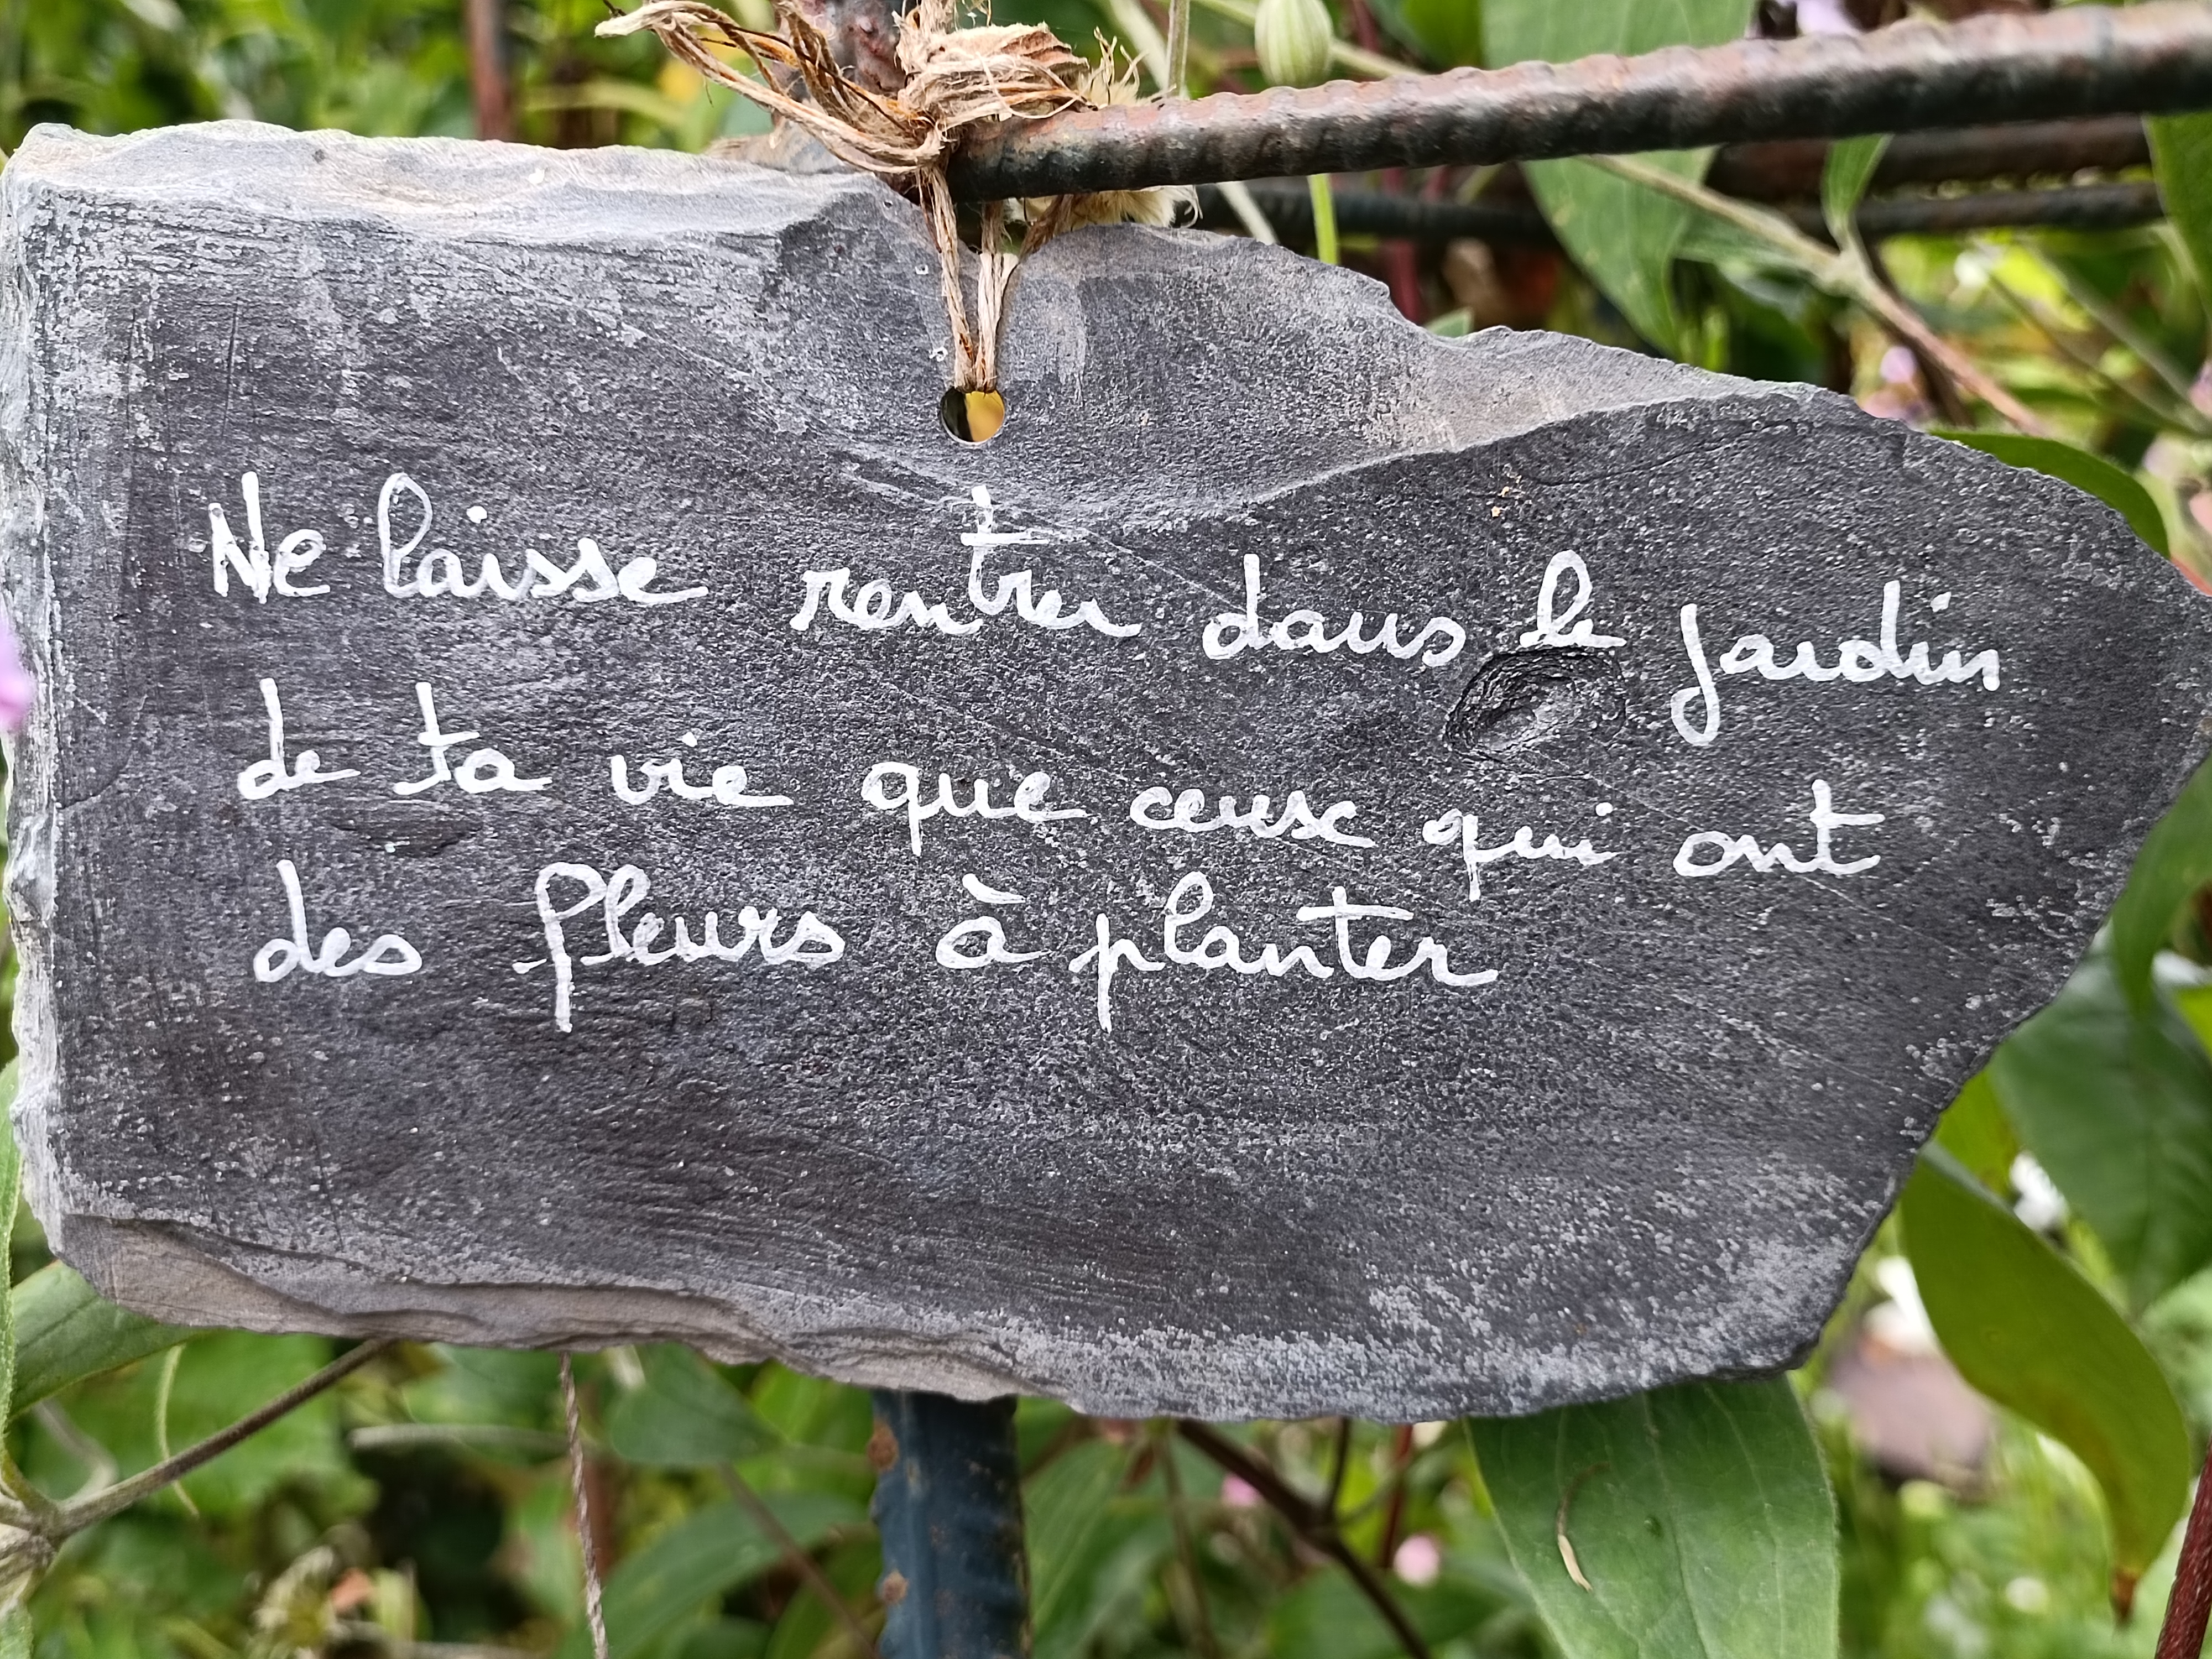 Ne laisse rentrer dans le jardin
de ta vie que ceux qui ont
des fleurs à planter